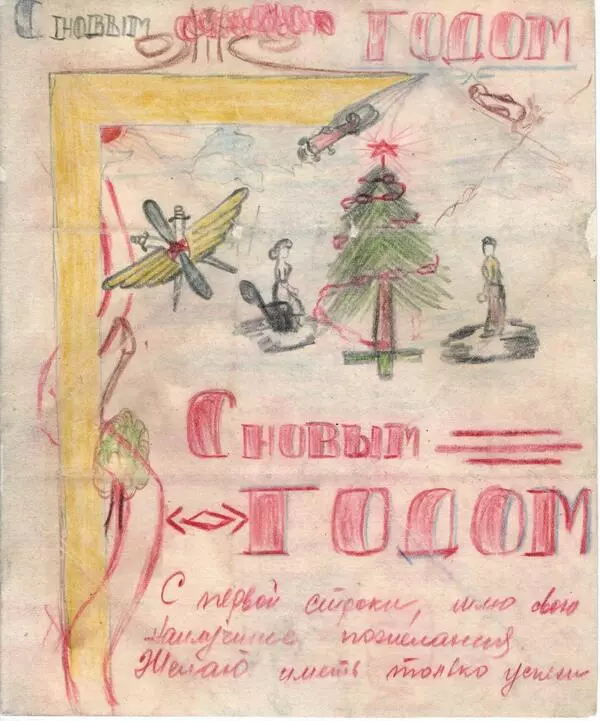 С новым годом
С новым
годом
С первой строки, шлю свои
Наилучшие пожелания.
Желаю иметь только успехи